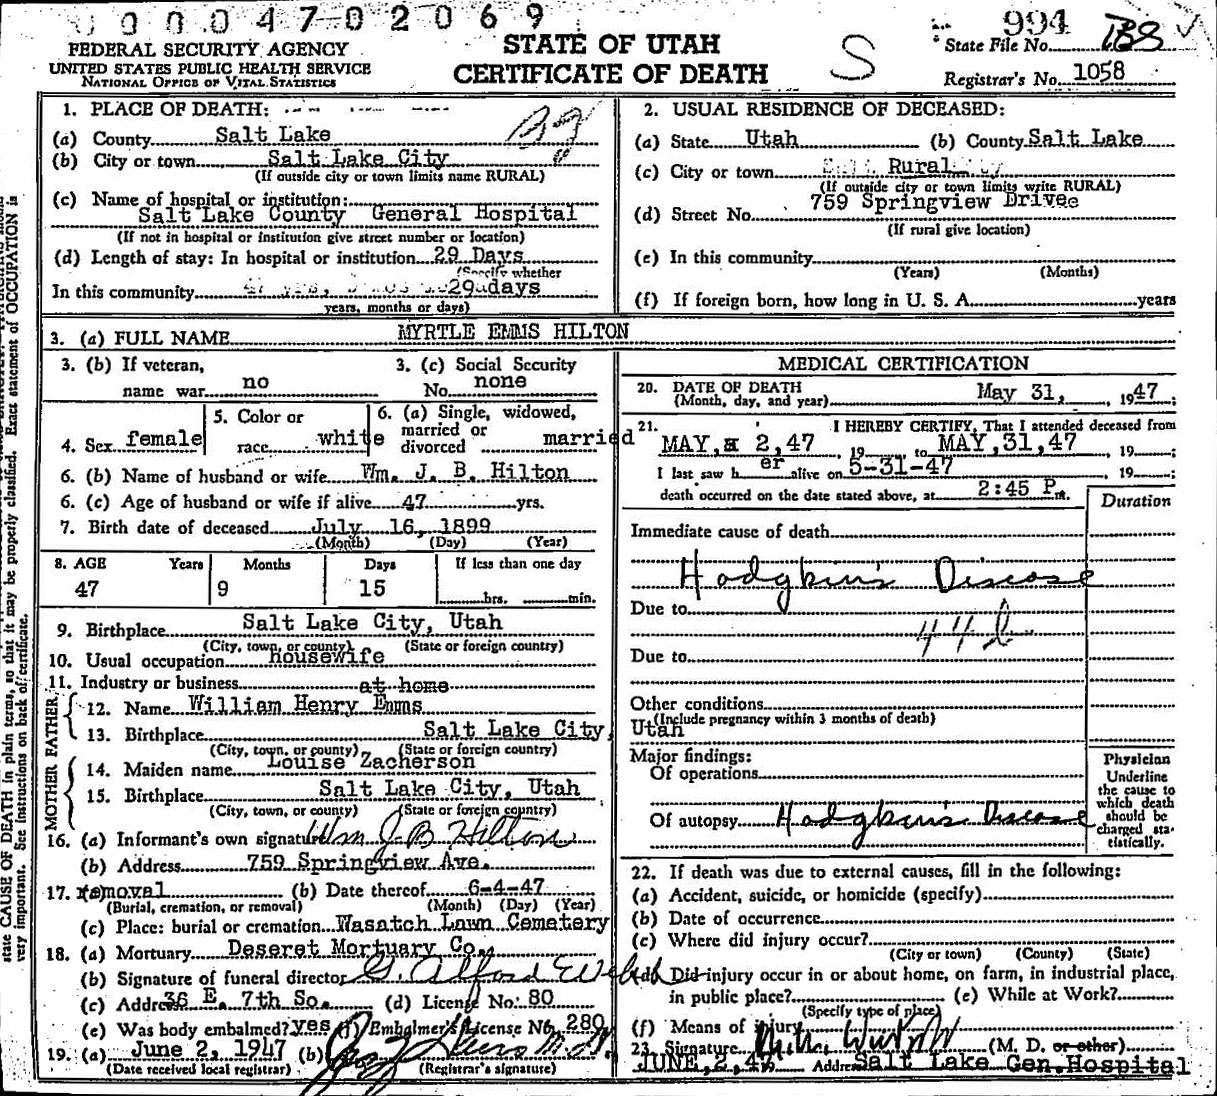 0 0 0 4 7 0 2 0 6 9
FEDERAL SECURITY AGENCY
UNITED STATES PUBLIC HEALTH SERVICE
NATIONAL OFFICE OF VITAL STATISTICS
STATE OF UTAH
CERTIFICATE OF DEATH
S
994
State File No.
Registrar's No. 1058
1. PLACE OF DEATH:
(a) County Salt Lake
(b) City or town Salt Lake City
(If outside city or town limits name RURAL)
(c) Name of hospital or institution:
Salt Lake County General Hospital
(If not in hospital or institution give street number or location)
(d) Length of stay: In hospital or institution 29 Days
(Specify whether
In this community 29 days
years, months or days)
2. USUAL RESIDENCE OF DECEASED:
(a) State Utah (b) County Salt Lake
(c) City or town Rural
(If outside city or town limits write RURAL)
(d) Street No. 759 Springview Drivee
(If rural give location)
(e) In this community
(Years) (Months)
(f) If foreign born, how long in U. S. A. years
3. (a) FULL NAME MYRTLE EMMS HILTON
3. (b) If veteran,
name war no
3. (c) Social Security
No. none
4. Sex female
5. Color or
race white
6. (a) Single, widowed,
married or
divorced married
6. (b) Name of husband or wife Wm. J. B. Hilton
6. (c) Age of husband or wife if alive 47 yrs.
7. Birth date of deceased July 16, 1899
(Month) (Day) (Year)
8. AGE Years Months Days If less than one day
47 9 15 hrs. min.
9. Birthplace Salt Lake City, Utah
(City, town, or county) (State or foreign country)
10. Usual occupation housewife
11. Industry or business at home
FATHER
12. Name William Henry Emms
13. Birthplace Salt Lake City, Utah
(City, town, or county) (State or foreign country)
MOTHER
14. Maiden name Louise Zacherson
15. Birthplace Salt Lake City, Utah
(City, town, or county) (State or foreign country)
16. (a) Informant's own signature Wm J B Hilton
(b) Address 759 Springview Ave.
17. removal (b) Date thereof 6-4-47
(Burial, cremation, or removal) (Month) (Day) (Year)
(c) Place: burial or cremation Wasatch Lawn Cemetery
18. (a) Mortuary Deseret Mortuary Co.
(b) Signature of funeral director G. Alford
(c) Address 36 E. 7th So. (d) License No. 80
(e) Was body embalmed? yes (f) Embalmer's License No. 280
19. (a) June 2, 1947 (b)
(Date received local registrar) (Registrar's signature)
MEDICAL CERTIFICATION
20. DATE OF DEATH
(Month, day, and year) May 31, 1947
21. I HEREBY CERTIFY, That I attended deceased from
MAY, 2,47 19 to MAY,31,47, 19 ;
I last saw her alive on 5-31-47, 19 ;
death occurred on the date stated above, at 2:45 P.m.
Duration
Immediate cause of death
Hodgkin's Disease
Due to
44b
Due to
Other conditions
(Include pregnancy within 3 months of death)
Major findings:
Of operations
Of autopsy Hodgkin's Disease
Physician
Underline
the cause to
which death
should be
charged sta-
tistically.
22. If death was due to external causes, fill in the following:
(a) Accident, suicide, or homicide (specify)
(b) Date of occurrence
(c) Where did injury occur?
(City or town) (County) (State)
(d) Did injury occur in or about home, on farm, in industrial place,
in public place? (e) While at Work?
(Specify type of place)
(f) Means of injury
23. Signature (M. D. or other)
JUNE,2,47 Address Salt Lake Gen.Hospital
state CAUSE OF DEATH in plain terms, so that it may be properly classified. Exact statement of OCCUPATION is
very important. See instructions on back of certificate.